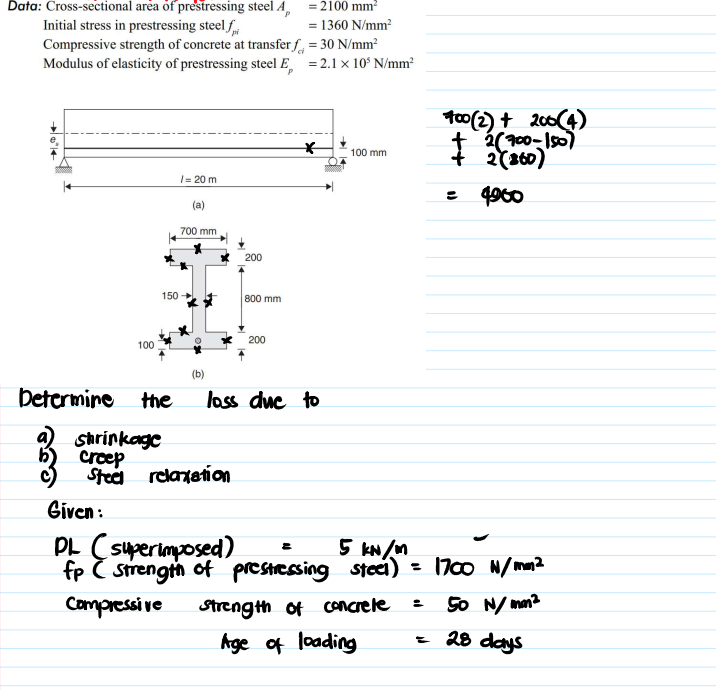 Data: Cross-sectional area of prestressing steel A_p = 2100 mm²
Initial stress in prestressing steel f_pi = 1360 N/mm²
Compressive strength of concrete at transfer f_ci = 30 N/mm²
Modulus of elasticity of prestressing steel E_p = 2.1 × 10⁵ N/mm²
e_o
100 mm
l = 20 m
(a)
700(2) + 200(4)
+ 2(700-150)
+ 2(800)
= 4900
700 mm
200
150
800 mm
100
200
(b)
Determine the loss due to
a) shrinkage
b) creep
c) Steel relaxation
Given:
DL (superimposed) = 5 kN/m
fp (strength of prestressing steel) = 1700 N/mm2
Compressive strength of concrete = 50 N/mm2
Age of loading = 28 days